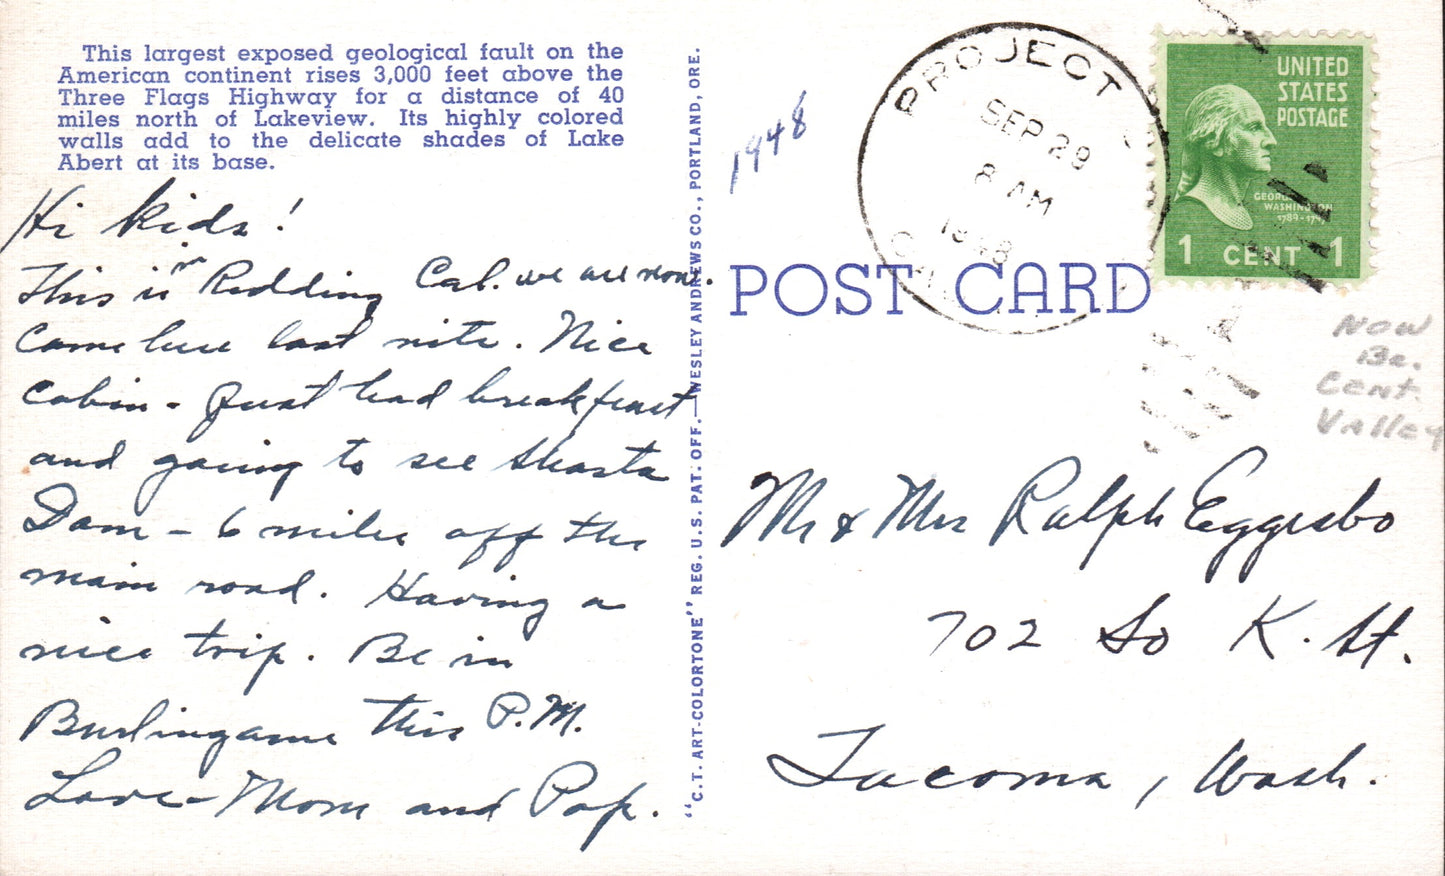 This largest exposed geological fault on the
American continent rises 3,000 feet above the
Three Flags Highway for a distance of 40
miles north of Lakeview. Its highly colored
walls add to the delicate shades of Lake
Abert at its base.
Hi Kids!
This is in Redding Cal. we are now.
Came here last nite. Nice
Cabin - Just had breakfast
and going to see Shasta
Dam - 6 miles off the
main road. Having a
nice trip. Be in
Burlingame this P.M.
Love - Mom and Pop.
"C.T. ART-COLORTONE" REG. U.S. PAT. OFF.—WESLEY ANDREWS CO., PORTLAND, ORE.
1948
PROJECT
SEP 29
8 AM
1948
UNITED
STATES
POSTAGE
WASHINGTON
1 CENT 1
POST CARD
Now
Cent.
Valley
Mr & Mrs Ralph Eggesbo
702 So K. St.
Tacoma, Wash.